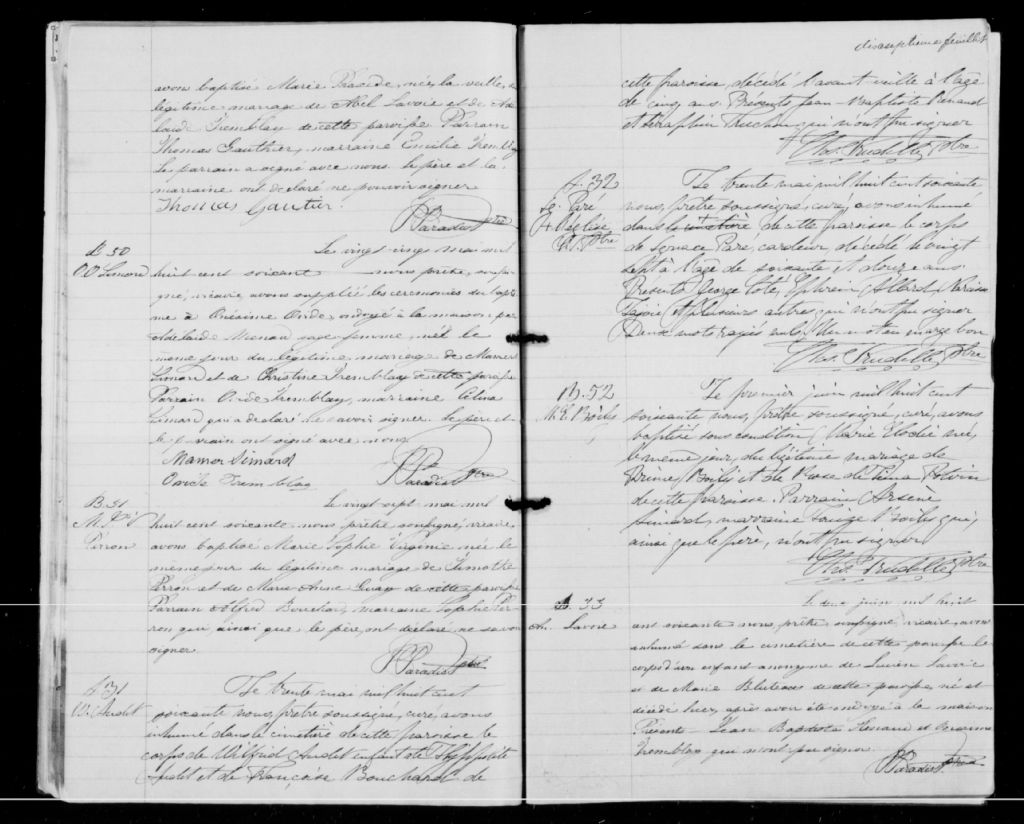 avons baptisé Marie Placide, née, la veille, du
légitime mariage de Abel Savoie et de
Tremblay de cette paroisse Parrain
Thomas Gauthier, marraine Emilie Trembl
le parrain a signé avec nous le père et la
marraine ont déclaré ne pouvoir signer
Thomas Gautier
P. Paradis Ptre
B 50
O. O. Simard
Le vingt mai mil
huit cent soixante nous prêtre, sousi
gné, vicaire, avons suppléé les cérémonies du bapte
me à Onésime Ovide, ondoyé à la maison par
Adelaide sage femme, né le
même jour du légitime mariage de
Simard et de Christine Tremblay de cette paroisse
Parrain Ovide Tremblay, marraine Célina
Simard qui a déclaré ne savoir signer. Le père et
le parrain ont signé avec nous
Simard
Ovide Tremblay
P. Paradis Ptre
B. 51
Le vingt sept mai mil
huit cent soixante nous prêtre soussigné, vicaire,
avons baptisé Marie Sophie Virginie née le
même jour du légitime mariage de Timothé
Perron et de Marie Anne Guay de cette paroisse
Parrain Alfred Bouchar, marraine Sophie Per-
ron qui, ainsi que le père, ont déclaré ne savoir
signer
P. Paradis Ptre
S 31
W. Audet
Le trente mai mil huit cent
soixante nous, prêtre soussigné, curé, avons
inhumé dans le cimetière de cette paroisse le
corps de Wilfrid Audet enfant de Hyppolite
Audet et de Françoise Bouchard de
dixseptième feuillet
cette paroisse, décédé l'avant veille à l'age
de cinq ans. Présents Jean-Baptiste Renaud
et Séraphin Truchon qui n'ont pu signer
Ths. Trudelle Ptre
S. 32
Ig. Paré
+ l'église
T. T. Ptre
Le trente mai mil huit cent soixante
nous, prêtre soussigné, curé, avons inhumé
dans le cimetière + de cette paroisse le corps
de Ignace Paré, cardeur décédé le vingt
sept à l'age de soixante et douze ans
Présents George Coté, Ephrem Allard, Narcisse
Lajoie et plusieurs autres qui n'ont pu signer
Deux mots rayés nuls. Un mot en marge bon
Ths. Trudelle Ptre
B. 52
M. E. Boily
Le premier juin mil huit cent
soixante nous, prêtre soussigné, curé, avons
baptisé sous condition Marie Elodie née,
le même jour, du légitime mariage de
Prime Boily et de Rose de Lima Potvin
de cette paroisse. Parrain Arsene
Simard, marraine Louise Boily qui,
ainsi que le père, n'ont pu signer
Ths. Trudelle Ptre
S. 33
An. Savoie
Le deux juin mil huit
cent soixante nous prêtre soussigné, vicaire, avons
inhumé dans le cimetière de cette paroisse le
corps d'un enfant anonyme de Lucien Savoie
et de Marie Bluteau de cette paroisse, né et
décédé hier, après avoir été ondoyé à la maison
Présents Jean Baptiste Renaud et
Tremblay qui n'ont pu signer
P. Paradis Ptre